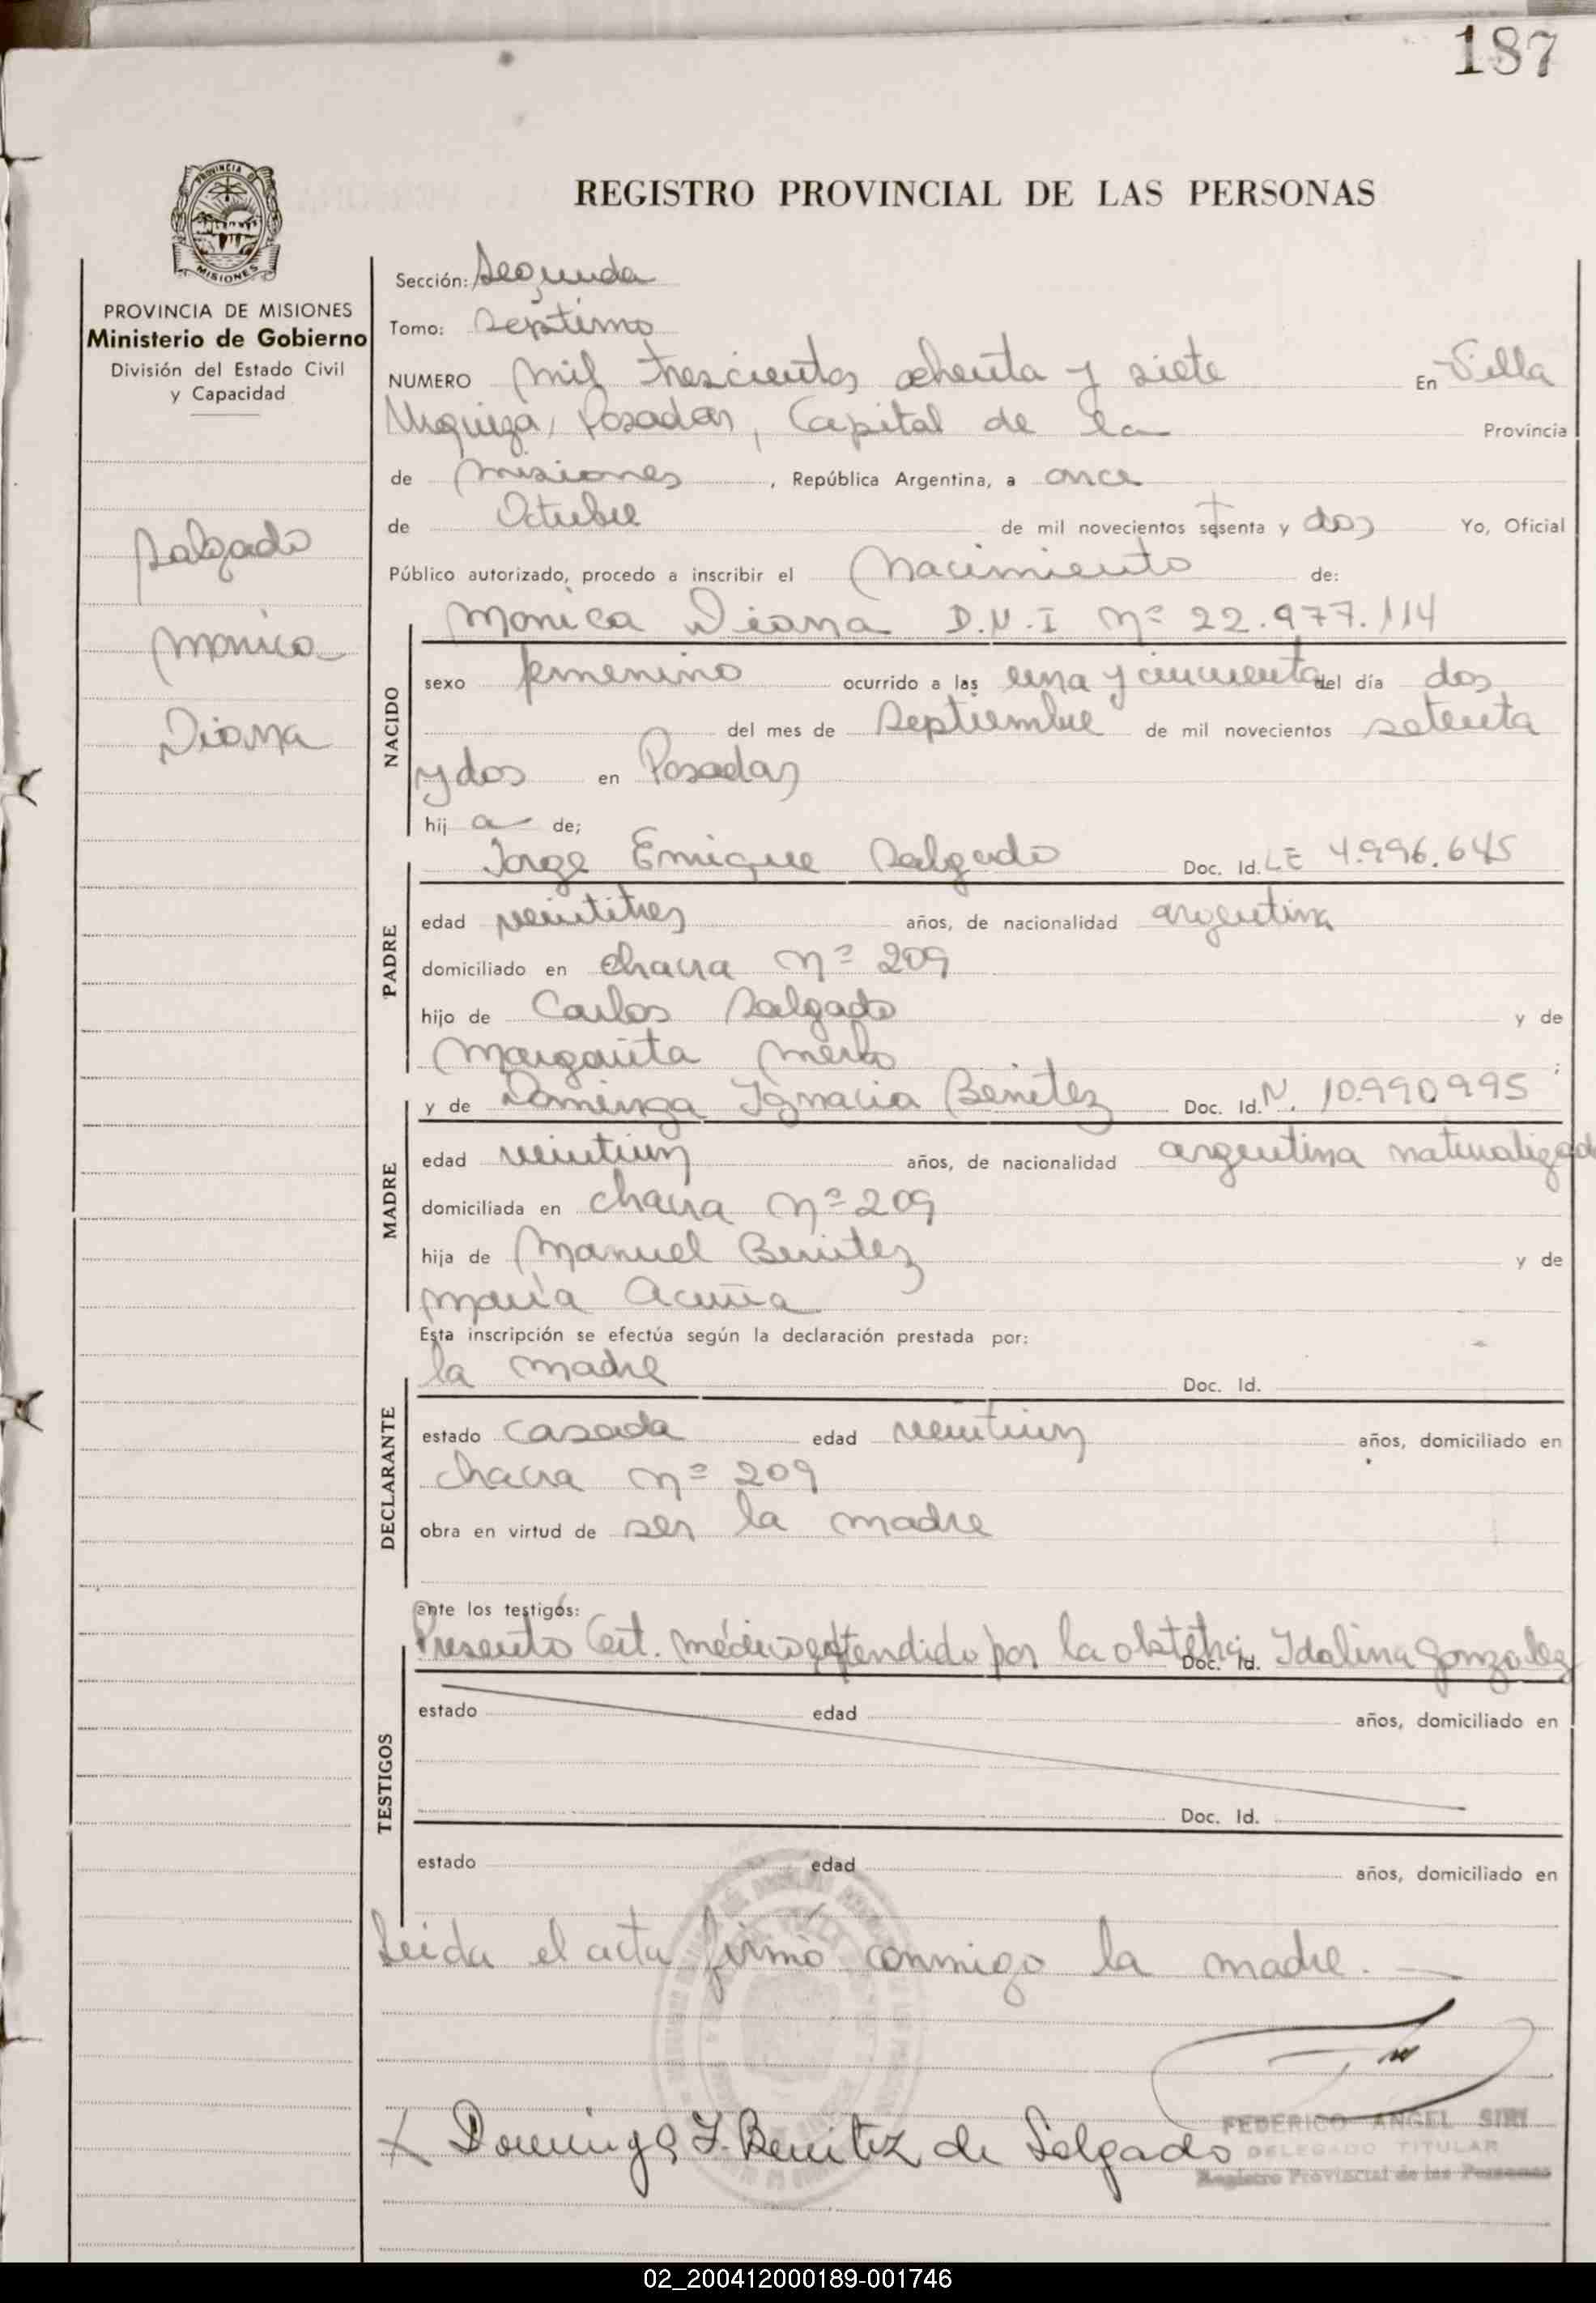 187
REGISTRO PROVINCIAL DE LAS PERSONAS
PROVINCIA DE
MISIONES
PROVINCIA DE MISIONES
Ministerio de Gobierno
División del Estado Civil
y Capacidad
Salgado
Monica
Diana
Sección: Segunda
Tomo: Septimo
NUMERO mil trescientos ochenta y siete En Villa
Urquiza, Posadas, Capital de la Provincia
de Misiones, República Argentina, a once
de Octubre de mil novecientos setenta y dos Yo, Oficial
Público autorizado, procedo a inscribir el Nacimiento de:
Monica Diana D.N.I Nº 22.977.114
NACIDO
sexo femenino ocurrido a las una y cincuenta del día dos
del mes de Septiembre de mil novecientos setenta
y dos en Posadas
hij a de;
Jorge Enrique Salgado Doc. Id. LE 4.996.645
PADRE
edad veintitres años, de nacionalidad argentina
domiciliado en chacra Nº 209
hijo de Carlos Salgado y de
Margarita Merlo ;
y de Dominga Ignacia Benitez Doc. Id. N. 10.990995
MADRE
edad veintiun años, de nacionalidad argentina naturalizada
domiciliada en chacra Nº 209
hija de Manuel Benitez y de
María Acuña
Esta inscripción se efectúa según la declaración prestada por:
la madre Doc. Id.
DECLARANTE
estado casada edad veintiun años, domiciliado en
chacra nº 209
obra en virtud de ser la madre
ante los testigos:
Presento Cert. médico extendido por la obstetra Doc. Id. Idalina Gonzalez
TESTIGOS
estado edad años, domiciliado en
Doc. Id.
estado edad años, domiciliado en
Leida el acta firmó conmigo la madre.
X Dominga I. Benitez de Salgado
FEDERICO ANGEL SIRI
DELEGADO TITULAR
Registro Provincial de las Personas
02_200412000189-001746